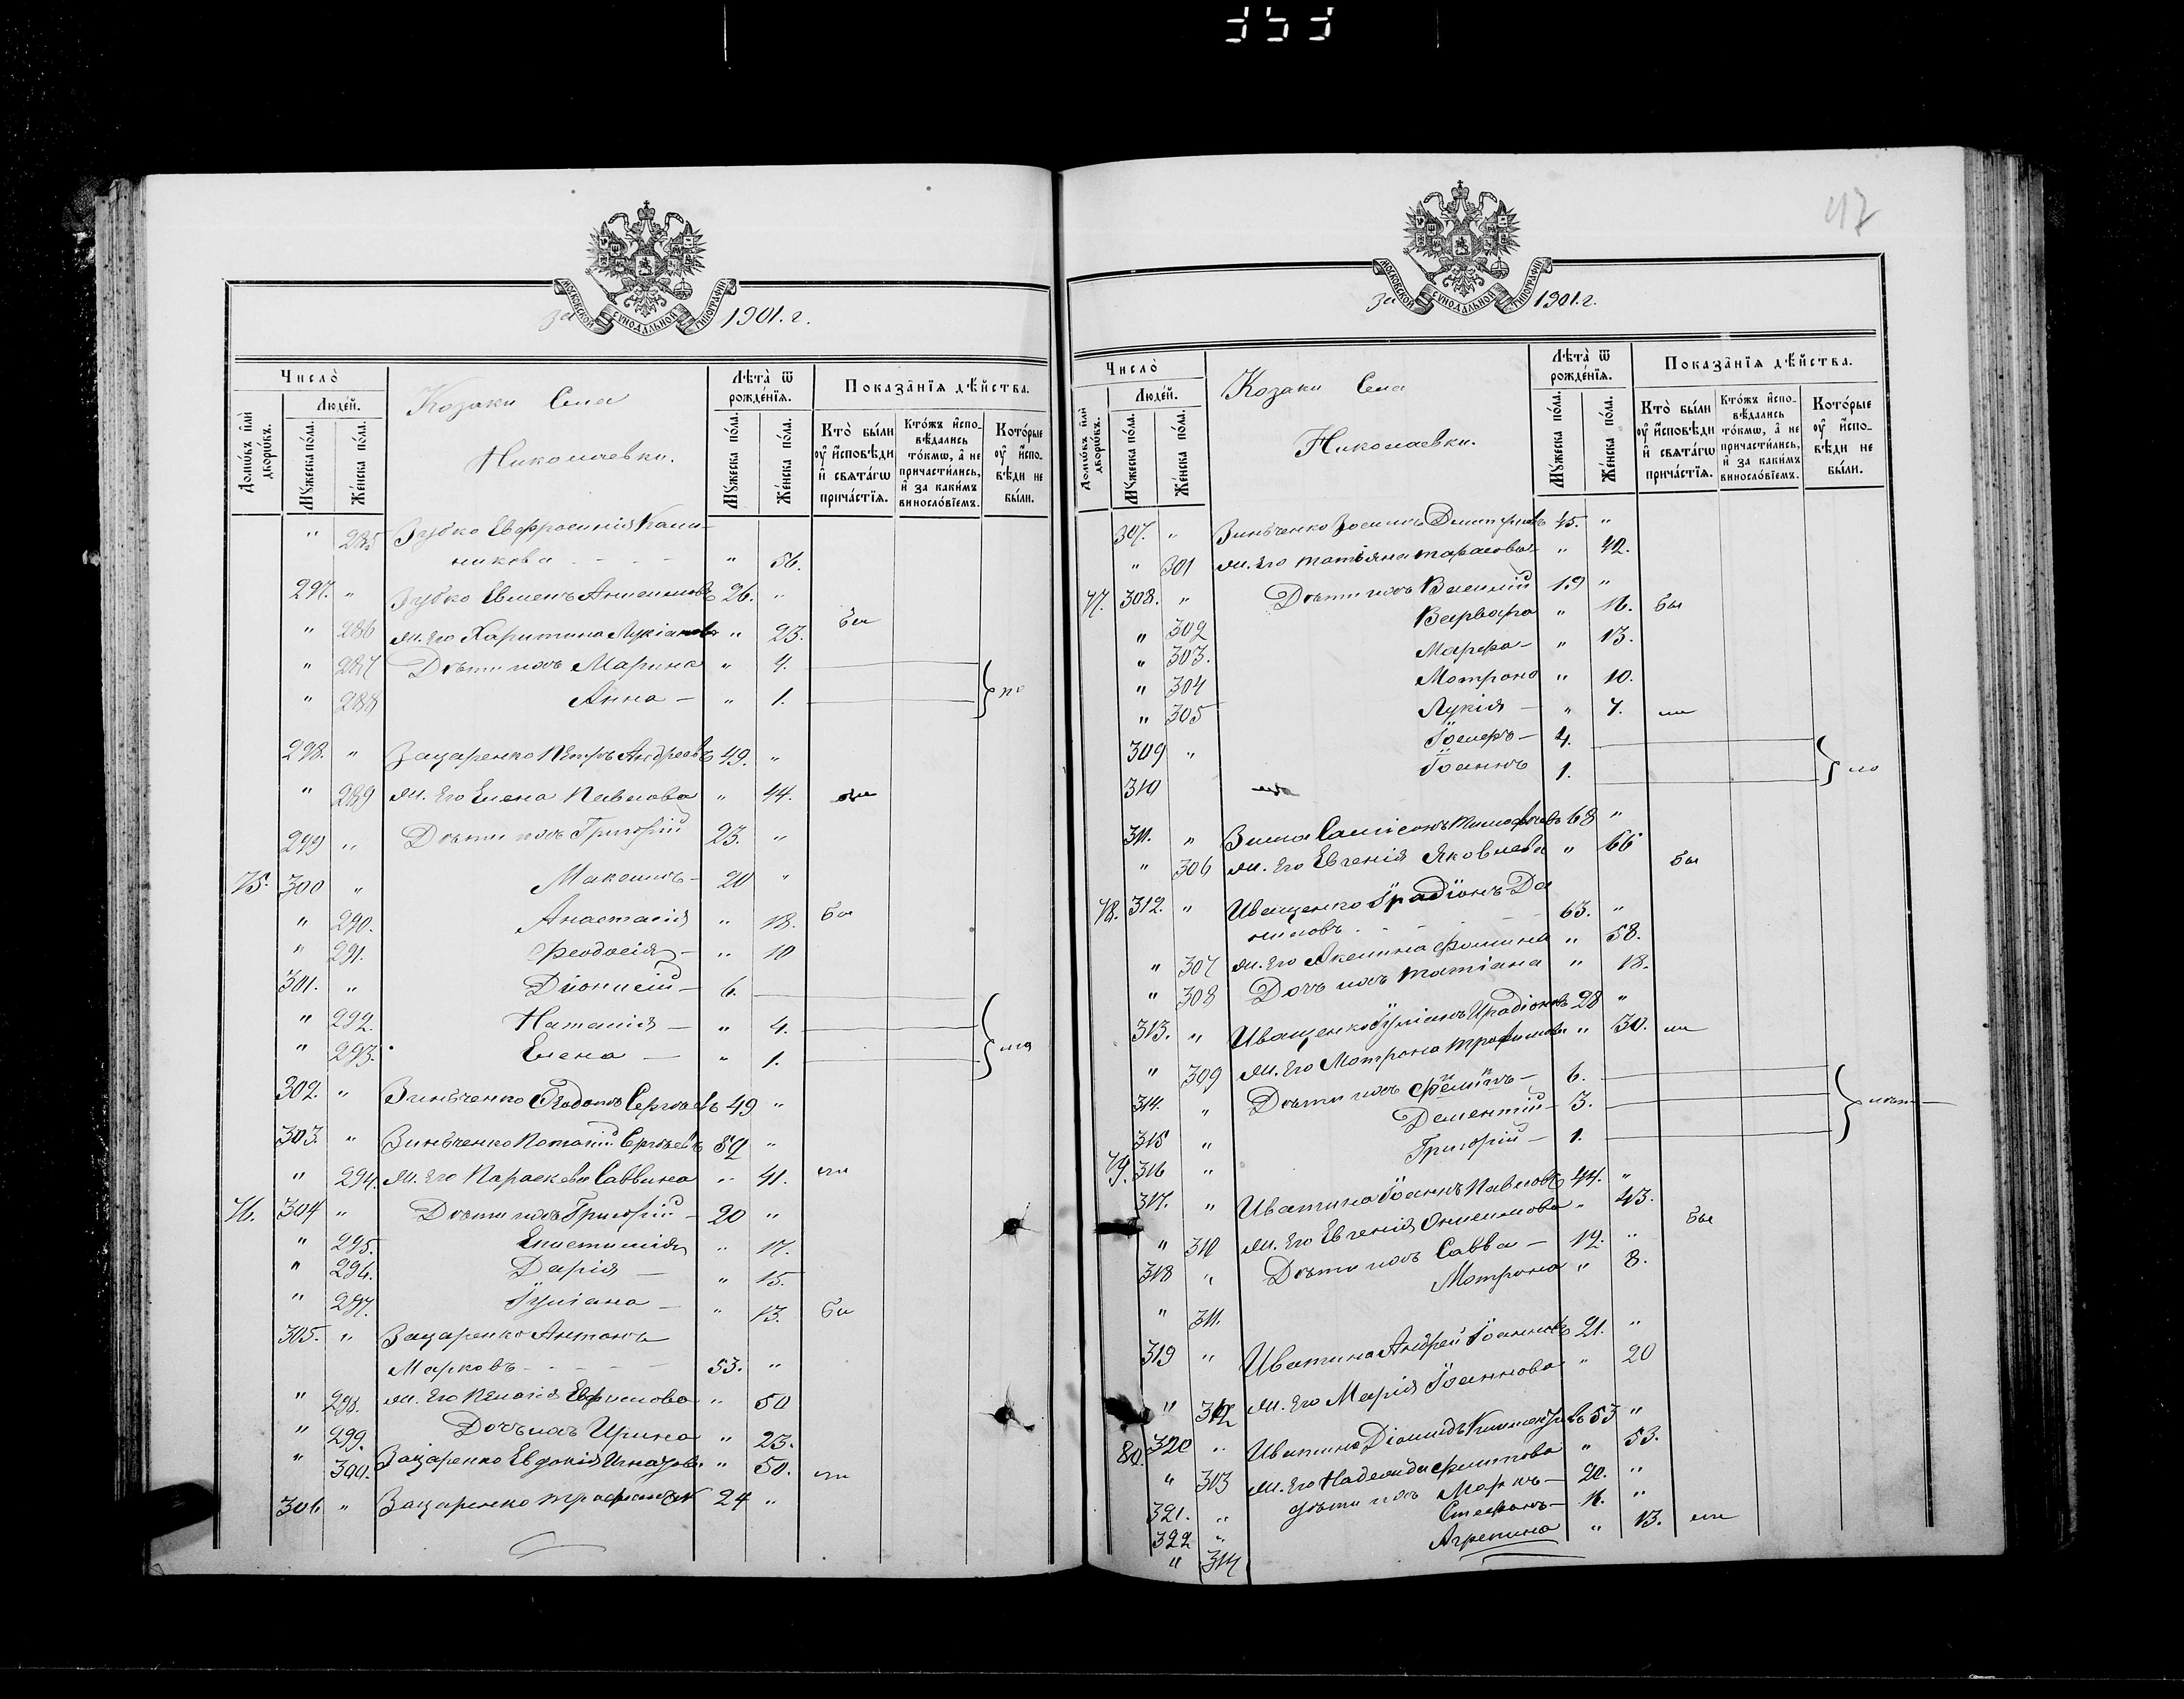 353
МОСКОВСКОЙ СѴНОДАЛЬНОЙ ТИПОГРАФІИ
за 1901. г.
Число̀
Домѡ́въ и҆лѝ дворѡ́въ.
Люде́й.
Мꙋжеска по́ла.
Же́нска по́ла.
Козаки Села
Николаевки.
Лѣта̀ ѿ рожде́нїѧ.
Мꙋжеска по́ла.
Же́нска по́ла.
Показа̑нїѧ дѣ́йства.
Кто̀ бы́ли ᲂу҆ и҆́сповѣди и҆ свѧта́гѡ прича́стїѧ.
Кто́жъ и҆спо-вѣ́дались то́кмѡ, а҆ не причасти́лись, и҆ за каки́мъ винослóвїемъ.
Кото́рые ᲂу҆ и҆́спо-вѣди не бы́ли.
" 285 Зубко Евфросинія Калин-
никова - - - - " 56.
297. " Зубко Евменъ Анисимовъ 26. "
" 286 ж. его Харитина Лукіанова " 23. бы
" 287 Дѣти ихъ Марина " 4.
" 288 Анна — " 1.
298. " Зацаренко Петръ Андреевъ 49. "
" 289 ж. Его Елена Павлова " 44.
299 " Дѣти ихъ Григорій 23. "
75. 300 " Максимъ — 20 "
" 290. Анастасія " 18. бы
" 291. Феодосія — " 10
301. " Діонисій — 6.
" 292. Наталія — " 4.
" 293. Елена — " 1.
302. " Зинѣченко Сергѣевъ 49 "
303. " Зинѣченко Потапій Сергѣевъ 52 "
" 294. ж. Его Параскева Саввина " 41. ли
76. 304 " Дѣти ихъ Григорій — 20 "
" 295. Епистимія " 17.
" 296. Дарія — " 15.
" 297. Іуліана — " 13. бы
305. " Зацаренко Антонъ
Марковъ - - - - 53. "
" 298. ж. Его Пелагія Ефимова " 50
" 299. Дочь ихъ Ирина " 23.
" 300. Зацаренко Евдокія Игнатова " 50. ли
306 " Зацаренко 24 "
47
МОСКОВСКОЙ СѴНОДАЛЬНОЙ ТИПОГРАФІИ
за 1901. г.
Число̀
Домѡ́въ и҆лѝ дворѡ́въ.
Люде́й.
Мꙋжеска по́ла.
Же́нска по́ла.
Козаки Села
Николаевки.
Лѣта̀ ѿ рожде́нїѧ.
Мꙋжеска по́ла.
Же́нска по́ла.
Показа̑нїѧ дѣ́йства.
Кто̀ бы́ли ᲂу҆ и҆́сповѣди и҆ свѧта́гѡ прича́стїѧ.
Кто́жъ и҆спо-вѣ́дались то́кмѡ, а҆ не причасти́лись, и҆ за каки́мъ винослóвїемъ.
Кото́рые ᲂу҆ и҆́спо-вѣди не бы́ли.
307. " Зинѣченко Зосимъ Димитріевъ 45. "
" 301 ж. Его Татьяна Тарасова " 42.
77. 308. " Дѣти ихъ Василій 19 "
" 302 Варвара " 16. бы
" 303. Марфа — " 13.
" 304 Мотрона " 10.
" 305 Лукія — " 7. ли
309 " Іосифъ — 4.
310 Іоаннъ 1.
311. " Зима Сампсонъ Тимофеевъ 68 "
" 306 ж. Его Евгенія Яковлева " 66 бы
78. 312. " Иващенко Ірадіонъ Да
ниловъ - - - 63. "
" 307 ж. Его Акилина Фомина " 58.
" 308 Дочь ихъ Татіана " 18.
313. " Иващенко Іуліанъ Ирадіоновъ 28 "
" 309 ж. Его Мотрона Трофимова " 30. ли
314. " Дѣти ихъ — 6.
315 " Дементій — 3.
79. 316 " Григорій — 1.
317. " Иватина Іоаннъ Павловъ 44. "
" 310 ж. Его Евгенія Онисимова " 43. бы
318 " Дѣти ихъ Савва — 12. "
" 311. Мотрона " 8.
319 " Иватина Андрей Іоанновъ 21. "
" 312 ж. Его Марія Іоаннова " 20
80. 320 " Иватина Діомидъ Климентіевъ 53 "
" 313 ж. Его Надежда Филипова " 53.
321. " дѣти ихъ Маркъ — 20. "
322 " Стефанъ — "
" 314 Агрепина " 13. ли